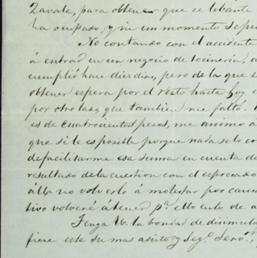 Zavala, para obtener que se libante
ha ocupado, y ni un momento
No contando con el accidente
á entrar en un negocio de tocineria, a
cumplió hace diez dias, pero de la que
obtener espera por el resto hasta hoy
por otro lado, que tambien me falta
es de cuatrocientos pesos, me animo a
que si le es posible porque nada se lo
de facilitarme esa suma en cuenta d
resultado de la cuestion con el espresado
á U. no volverlo á molestar por
tivo volveré á tener pª ello
Tenga U. la bondad de disimula
fiere este su mas adicto y Segº Servr